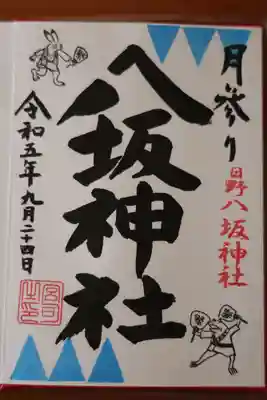 月参り
日野八坂神社
八坂神社
令和五年九月二十四日
宮司之印